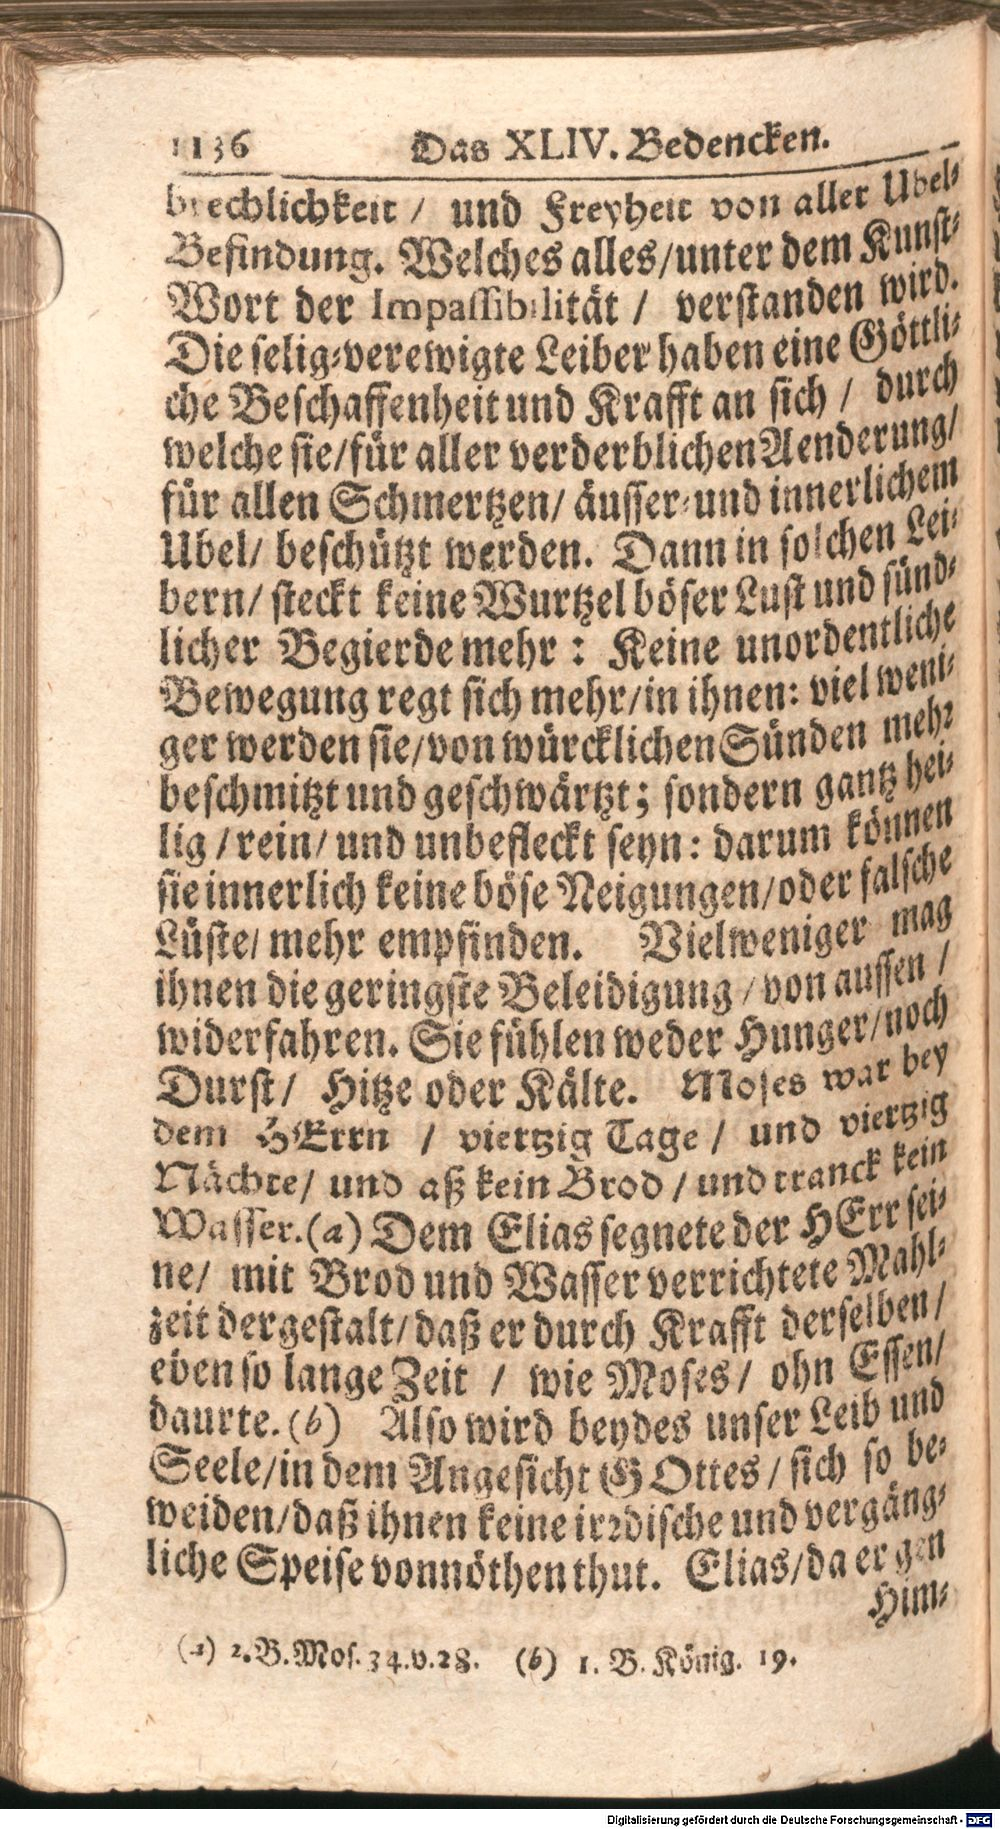 1136 Das XLIV. Bedencken.
brechlichkeit / und Freyheit von aller Ubel-
Befindung. Welches alles/unter dem Kunst-
Wort der Impassibilität / verstanden wird.
Die selig-verewigte Leiber haben eine Göttli-
che Beschaffenheit und Krafft an sich / durch
welche sie/für aller verderblichen Aenderung/
für allen Schmertzen/ äusser-und innerlichem
Ubel/ beschützt werden. Dann in solchen Lei-
bern/ steckt keine Wurtzel böser Lust und sünd-
licher Begierde mehr : Keine unordentliche
Bewegung regt sich mehr/in ihnen: viel weni-
ger werden sie/von würcklichen Sünden mehr
beschmitzt und geschwärtzt; sondern gantz hei-
lig / rein/ und unbefleckt seyn: darum können
sie innerlich keine böse Neigungen/oder falsche
Lüste/ mehr empfinden. Vielweniger mag
ihnen die geringste Beleidigung / von aussen /
widerfahren. Sie fühlen weder Hunger/noch
Durst/ Hitze oder Kälte. Moses war bey
dem HErrn / viertzig Tage / und viertzig
Nächte/ und aß kein Brod / und tranck kein
Wasser.(a) Dem Elias segnete der HErr sei-
ne/ mit Brod und Wasser verrichtete Mahl-
zeit dergestalt/daß er durch Krafft derselben/
eben so lange Zeit / wie Moses/ ohn Essen/
daurte.(b) Also wird beydes unser Leib und
Seele/in dem Angesicht GOttes / sich so be-
weiden/daß ihnen keine irrdische und vergäng-
liche Speise vonnöthen thut. Elias/da er gen
Him-
(a) 2.B.Mos.34.v.28. (b) 1. B. König. 19.
Digitalisierung gefördert durch die Deutsche Forschungsgemeinschaft - DFG